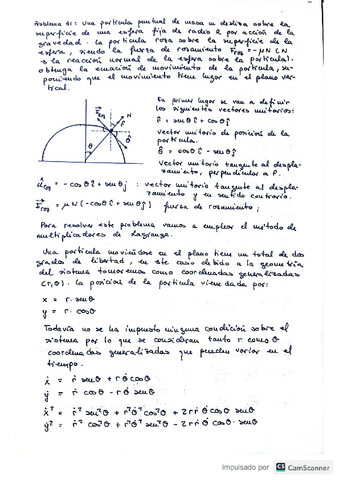 Problema 41: Una partícula puntual de masa m desliza sobre la
superficie de una esfera fija de radio R por acción de la
gravedad. La partícula roza sobre la superficie de la
esfera, siendo la fuerza de rozamiento Froz = -μN (N
es la reacción normal de la esfera sobre la partícula).
obtenga la ecuación de movimiento de la partícula, su-
poniendo que el movimiento tiene lugar en el plano ver-
tical.
En primer lugar se van a definir
los siguientes vectores unitarios:
r̂ = senθ î + cosθ ĵ
vector unitario de posición de la
partícula.
θ̂ = cosθ î - senθ ĵ
vector unitario tangente al despla-
zamiento, perpendicular a r̂.
N
r̂
θ̂
θ
= -cosθ î + senθ ĵ : vector unitario tangente al despla-
zamiento y en sentido contrario.
Froz = μN(-cosθ î + senθ ĵ) fuerza de rozamiento;
Para resolver este problema vamos a emplear el método de
multiplicadores de Lagrange.
Una partícula moviéndose en el plano tiene un total de dos
grados de libertad, en este caso debido a la geometría
del sistema tomaremos como coordenadas generalizadas
(r,θ). La posición de la partícula viene dada por:
x = r·senθ
y = r·cosθ
Todavía no se ha impuesto ninguna condición sobre el
sistema por lo que se consideran tanto r como θ
coordenadas generalizadas que pueden variar en el
tiempo.
ẋ = ṙ senθ + r θ̇ cosθ
ẏ = ṙ cosθ - r θ̇ senθ
ẋ² = ṙ² sen²θ + r² θ̇² cos²θ + 2rṙ θ̇ cosθ senθ
ẏ² = ṙ² cos²θ + r² θ̇² sen²θ - 2rṙ θ̇ cosθ·senθ
Impulsado por CS CamScanner